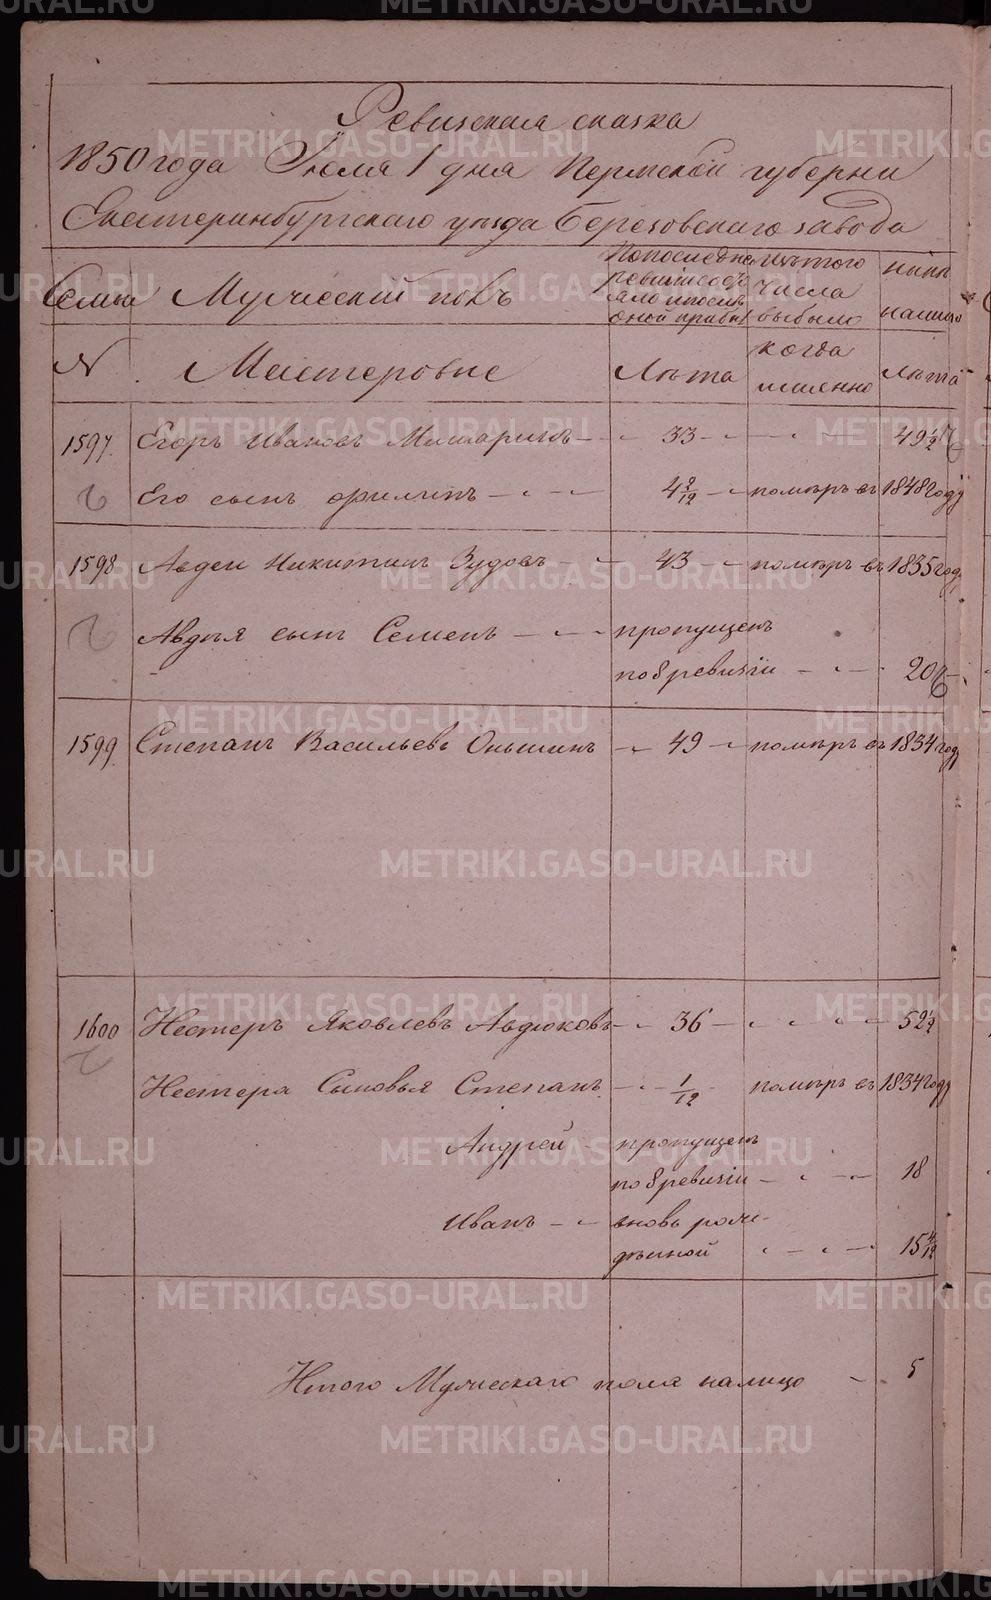 Ревизская сказка
1850 года Июля 1 дня Пермской губерни
Екатеринбургскаго уѣзда Березовскаго завода
Семьи Мужеский полъ
По последней ревизіи состояло и после оной прибыло
Изъ того числа выбыло
нынѣ налицо
N Мастеровые Лѣта когда именно лѣта
1597. Егоръ Ивановъ Мишаринъ 33 49 1/2
Его сынъ Филипъ 4 2/12 помѣръ въ 1848 году
1598 Авдеи Никитинъ Зудовъ 43 помѣръ въ 1835 году
Авдѣя сынъ Семенъ пропущенъ
по 8 ревизіи 20
1599. Степанъ Васильевъ Оньшинъ 49 помѣръ въ 1834 году
1600 Нестеръ Яковлевъ Авдюковъ 36 52 1/2
Нестера Сыновья Степанъ 1/12 помѣръ въ 1834 году
Андрей пропущенъ
по 8 ревизіи 18
Иванъ вновь рож-
денной 15 4/12
Итого Мужескаго пола налицо 5
METRIKI.GASO-URAL.RU